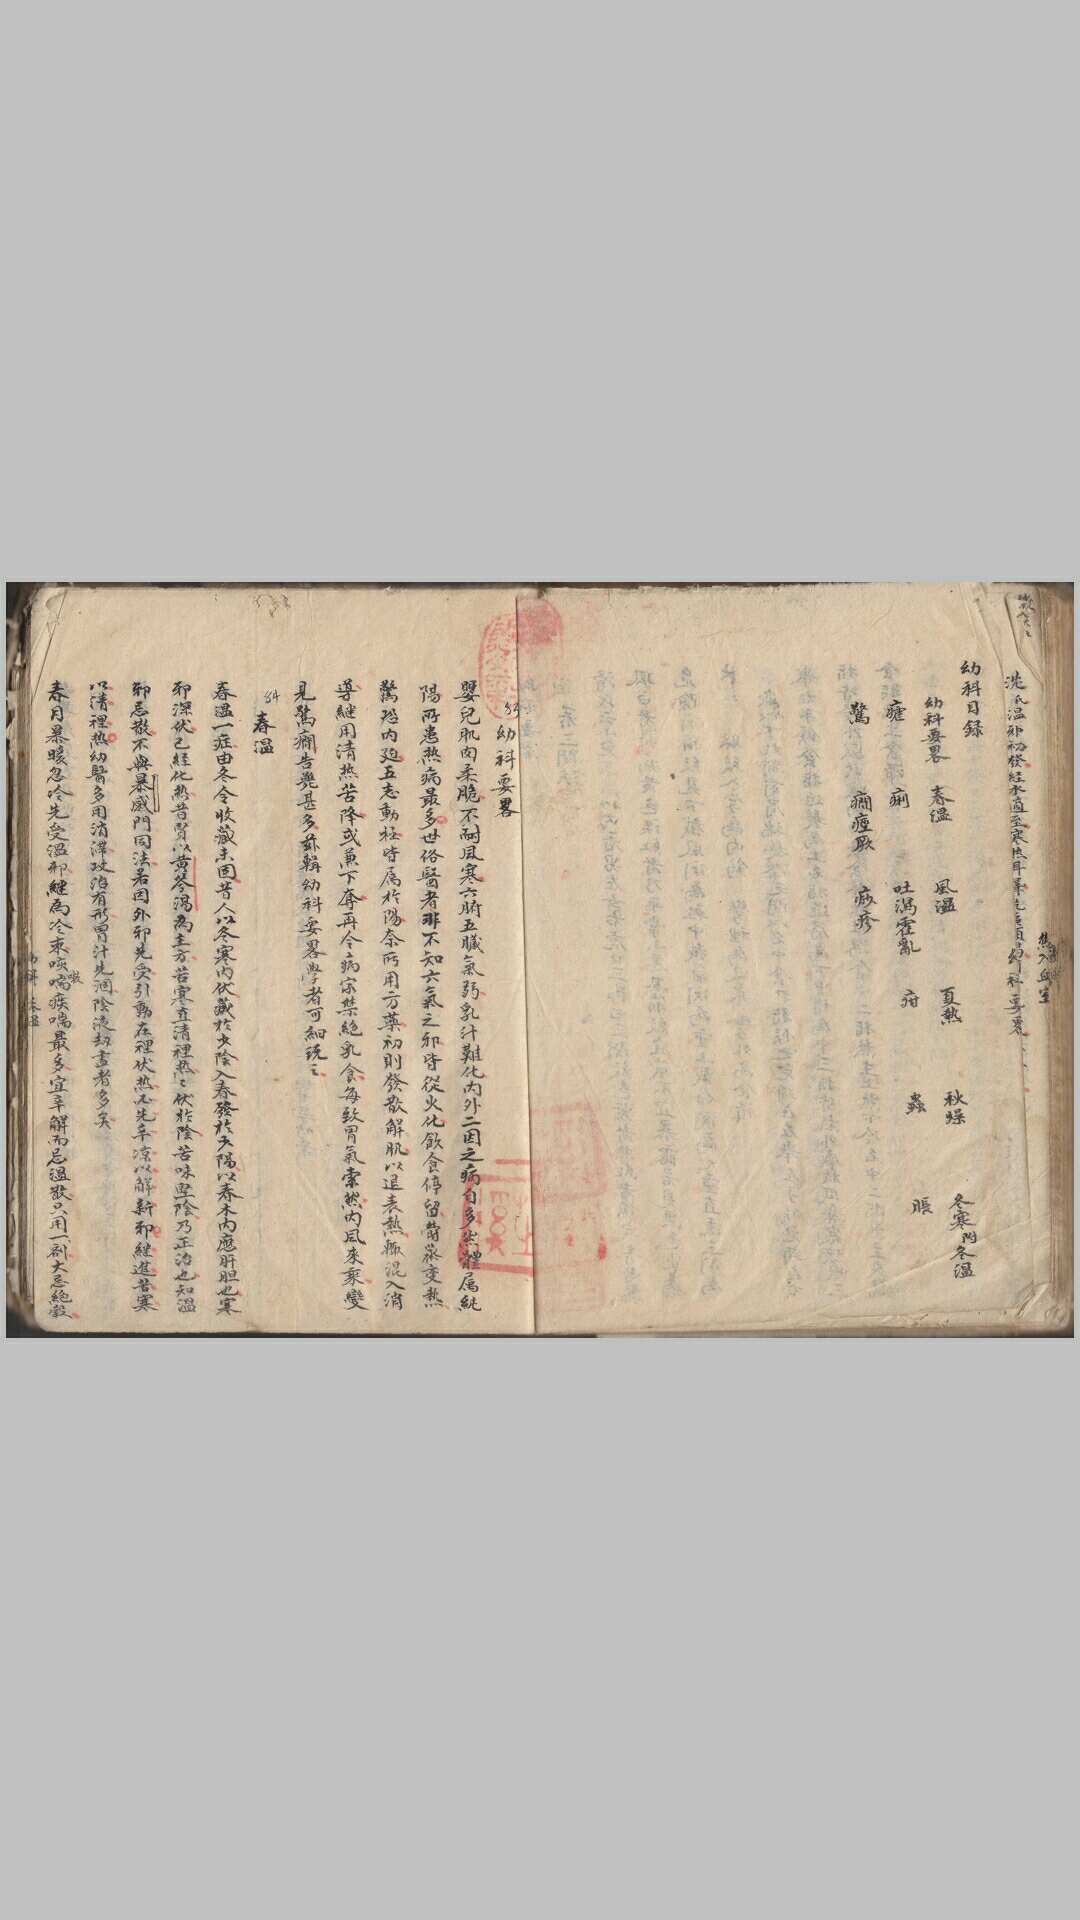 幼科目録
幼科要畧　春溫　風溫　夏熱　秋燥　冬寒門冬溫
瘧　痢　吐瀉霍亂　疳　蟲　脹
驚　癇痙厥　痧疹
幼科要畧
嬰兒肌肉柔脆不耐風寒六腑五臟氣弱乳汁難化內外二因之病自多然體属純
陽所患热病最多世俗醫者非不知六氣之邪皆從火化飲食停留鬱蒸变热
驚恐內迫五志動極皆属於陽奈所用方藥初則發散解肌以退表热輙混入消
導継用清热苦降或兼下奪再令病家禁絶乳食每致胃氣索然內風来乘變
見驚癇告斃甚多兹輯幼科要畧學者可細玩之
春溫
春溫一症由冬令收藏未固昔人以冬寒內伏藏於少陰入春發於少陽以春木內應肝胆也寒
邪深伏已經化热昔賢以黄芩湯為主方苦寒直清裡热之伏於陰苦味堅陰乃正治也知溫
邪忌散不與暴感門同法若因外邪先受引動在裡伏热必先辛凉以解新邪継進苦寒
以清裡热幼醫多用消滞攻治有形胃汁先涸陰液劫盡者多矣
春月暴暖忽冷先受溫邪継為冷束咳嗽痰喘最多宜辛解而忌溫散只用一剂大忌絶穀